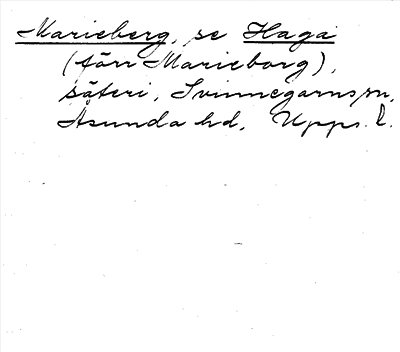 Marieberg, se Haga
(förr Marieborg),
säteri, Svinnegarns sn,
Åsunda hd, Upps. l.